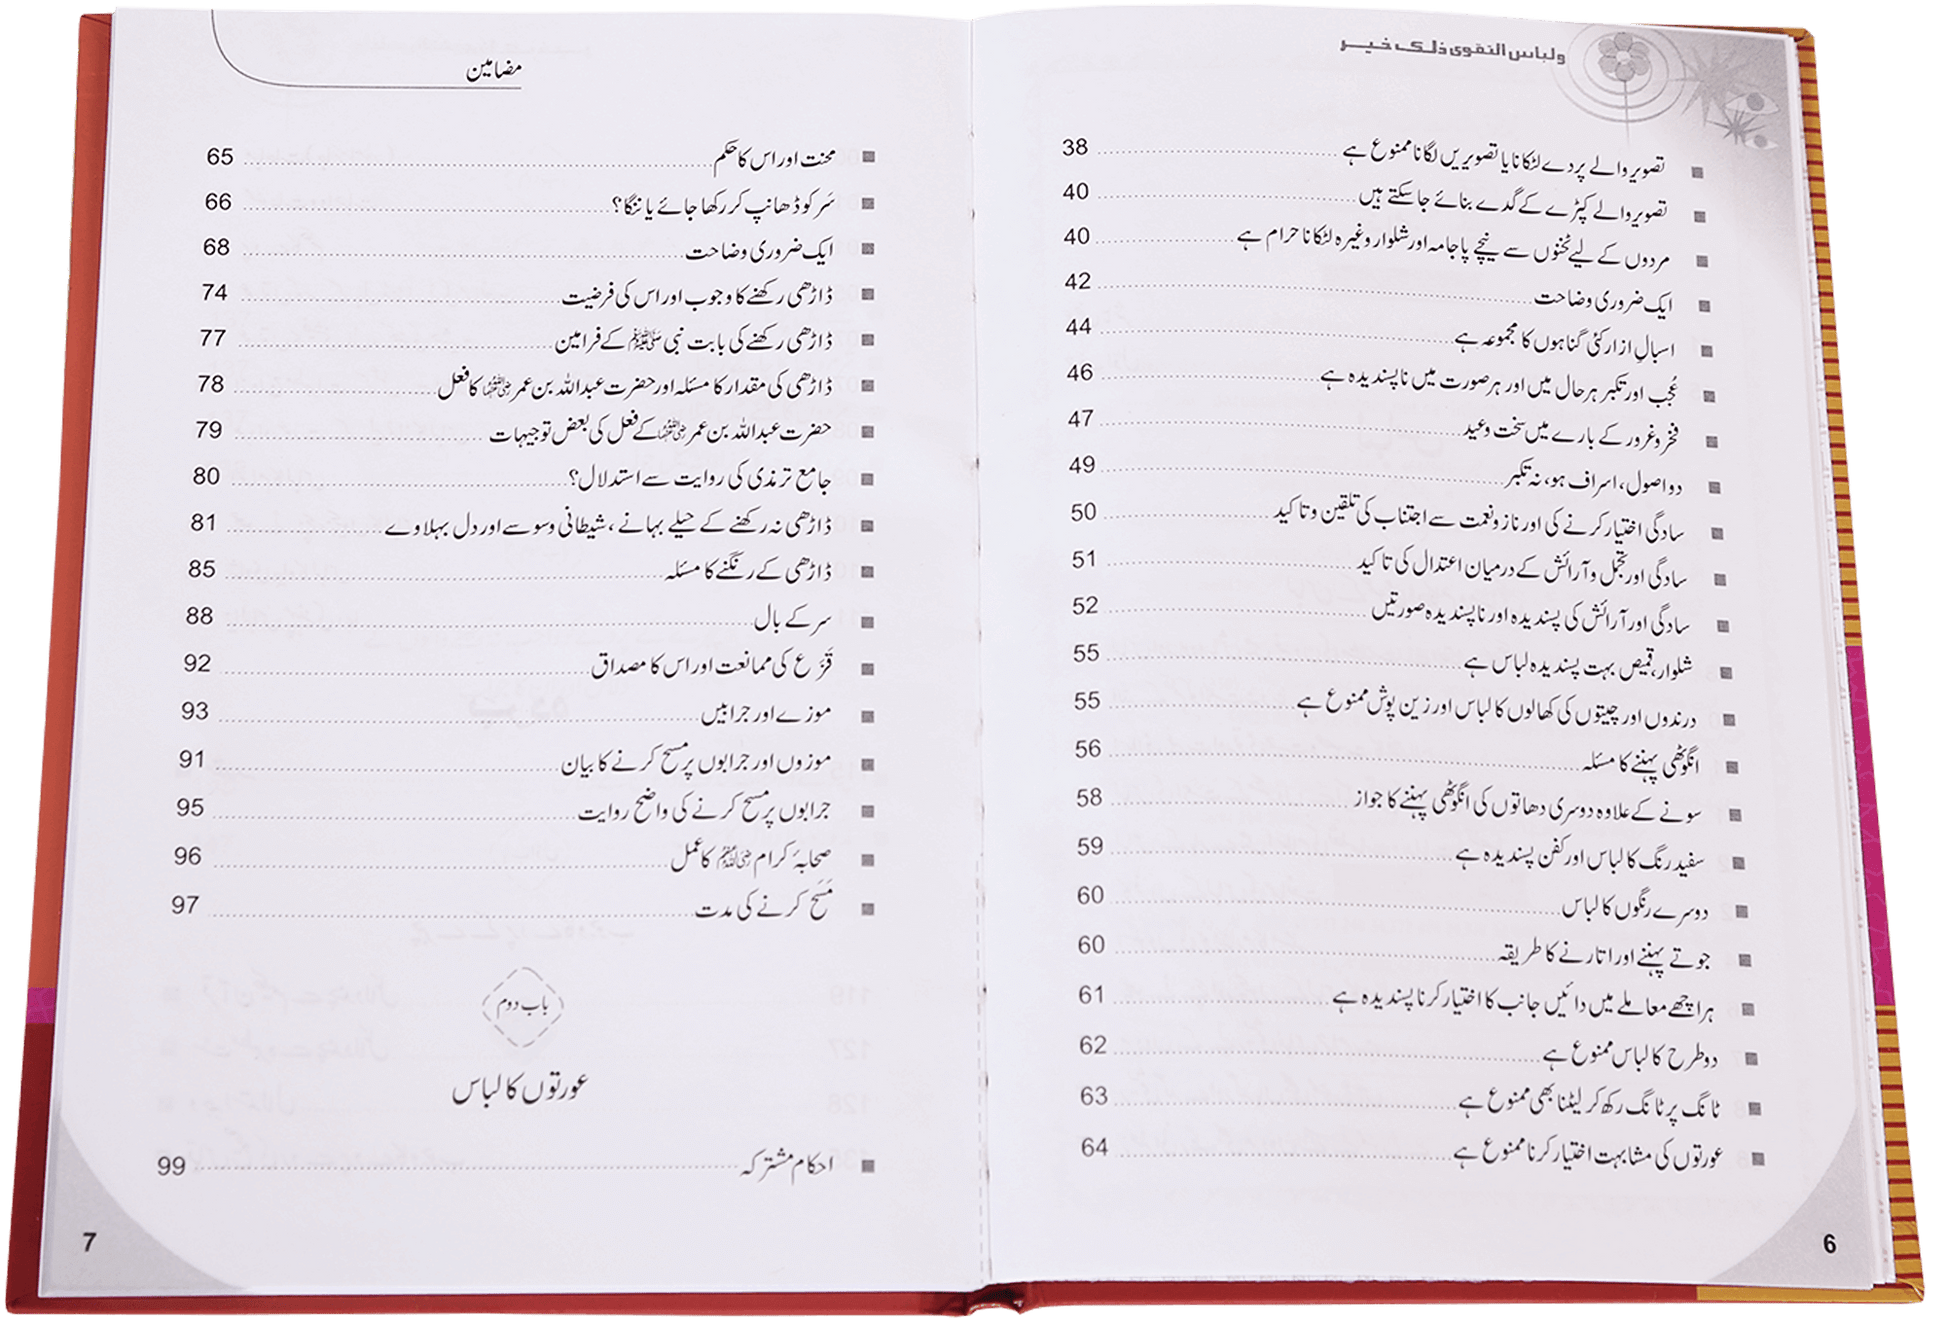 ولباس التقوى ذلك خير
تصویر والے پردے لٹکانا یا تصویریں لگانا ممنوع ہے 38
تصویر والے کپڑے کے گدے بنائے جاسکتے ہیں 40
مردوں کے لیے ٹخنوں سے نیچے پاجامہ اور شلوار وغیرہ لٹکانا حرام ہے 40
ایک ضروری وضاحت 42
اسبالِ ازار کئی گناہوں کا مجموعہ ہے 44
عُجب اور تکبر ہر حال میں اور ہر صورت میں ناپسندیدہ ہے 46
فخر و غرور کے بارے میں سخت وعید 47
دو اصول، اسراف ہو، نہ تکبر 49
سادگی اختیار کرنے کی اور ناز و نعمت سے اجتناب کی تلقین و تاکید 50
سادگی اور تجمل و آرائش کے درمیان اعتدال کی تاکید 51
سادگی اور آرائش کی پسندیدہ اور ناپسندیدہ صورتیں 52
شلوار، قمیص بہت پسندیدہ لباس ہے 55
درندوں اور چیتوں کی کھالوں کا لباس اور زین پوش ممنوع ہے 55
انگوٹھی پہننے کا مسئلہ 56
سونے کے علاوہ دوسری دھاتوں کی انگوٹھی پہننے کا جواز 58
سفید رنگ کا لباس اور کفن پسندیدہ ہے 59
دوسرے رنگوں کا لباس 60
جوتے پہننے اور اتارنے کا طریقہ 60
ہر اچھے معاملے میں دائیں جانب کا اختیار کرنا پسندیدہ ہے 61
دو طرح کا لباس ممنوع ہے 62
ٹانگ پر ٹانگ رکھ کر لیٹنا بھی ممنوع ہے 63
عورتوں کی مشابہت اختیار کرنا ممنوع ہے 64
6
مضامین
مخنث اور اس کا حکم 65
سَر کو ڈھانپ کر رکھا جائے یا ننگا؟ 66
ایک ضروری وضاحت 68
ڈاڑھی رکھنے کا وجوب اور اس کی فرضیت 74
ڈاڑھی رکھنے کی بابت نبی ﷺ کے فرامین 77
ڈاڑھی کی مقدار کا مسئلہ اور حضرت عبداللہ بن عمر رضی اللہ عنہما کا فعل 78
حضرت عبداللہ بن عمر رضی اللہ عنہما کے فعل کی بعض توجیہات 79
جامع ترمذی کی روایت سے استدلال؟ 80
ڈاڑھی نہ رکھنے کے حیلے بہانے، شیطانی وسوسے اور دل بہلاوے 81
ڈاڑھی کے رنگنے کا مسئلہ 85
سر کے بال 88
قَزَع کی ممانعت اور اس کا مصداق 92
موزے اور جرابیں 93
موزوں اور جرابوں پر مسح کرنے کا بیان 91
جرابوں پر مسح کرنے کی واضح روایت 95
صحابۂ کرام رضی اللہ عنہم کا عمل 96
مَسَح کرنے کی مدت 97
باب دوم
عورتوں کا لباس
احکام مشترکہ 99
7